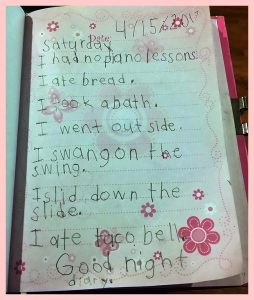 Date: 4/15/2017
Saturday
I had no piano lessons.
I ate bread.
I took a bath.
I went out side.
I swang on the
swing.
I slid down the
slide.
I ate taco bell.
Good night
diary.